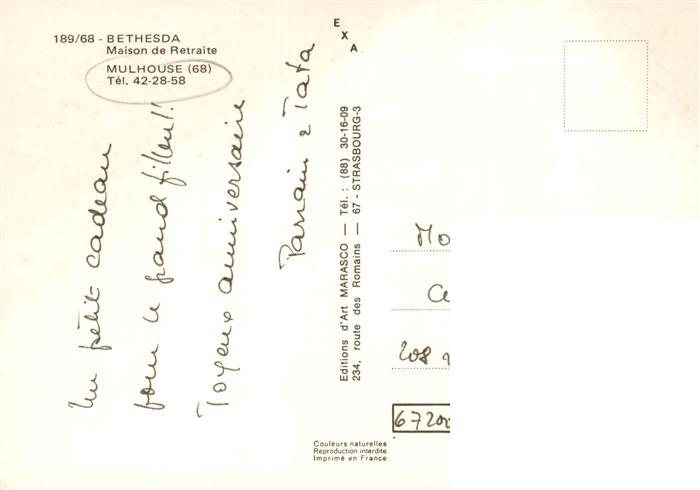 189/68 - BETHESDA
Maison de Retraite
MULHOUSE (68)
Tél. 42-28-58
EXA
Un petit cadeau
pour le grand filleul!
Joyeux anniversaire
Parrain & Tata
Editions d'Art MARASCO — Tél. : (88) 30-16-09
234, route des Romains — 67 - STRASBOURG-3
Mo
208
67200
Couleurs naturelles
Reproduction interdite
Imprimé en France